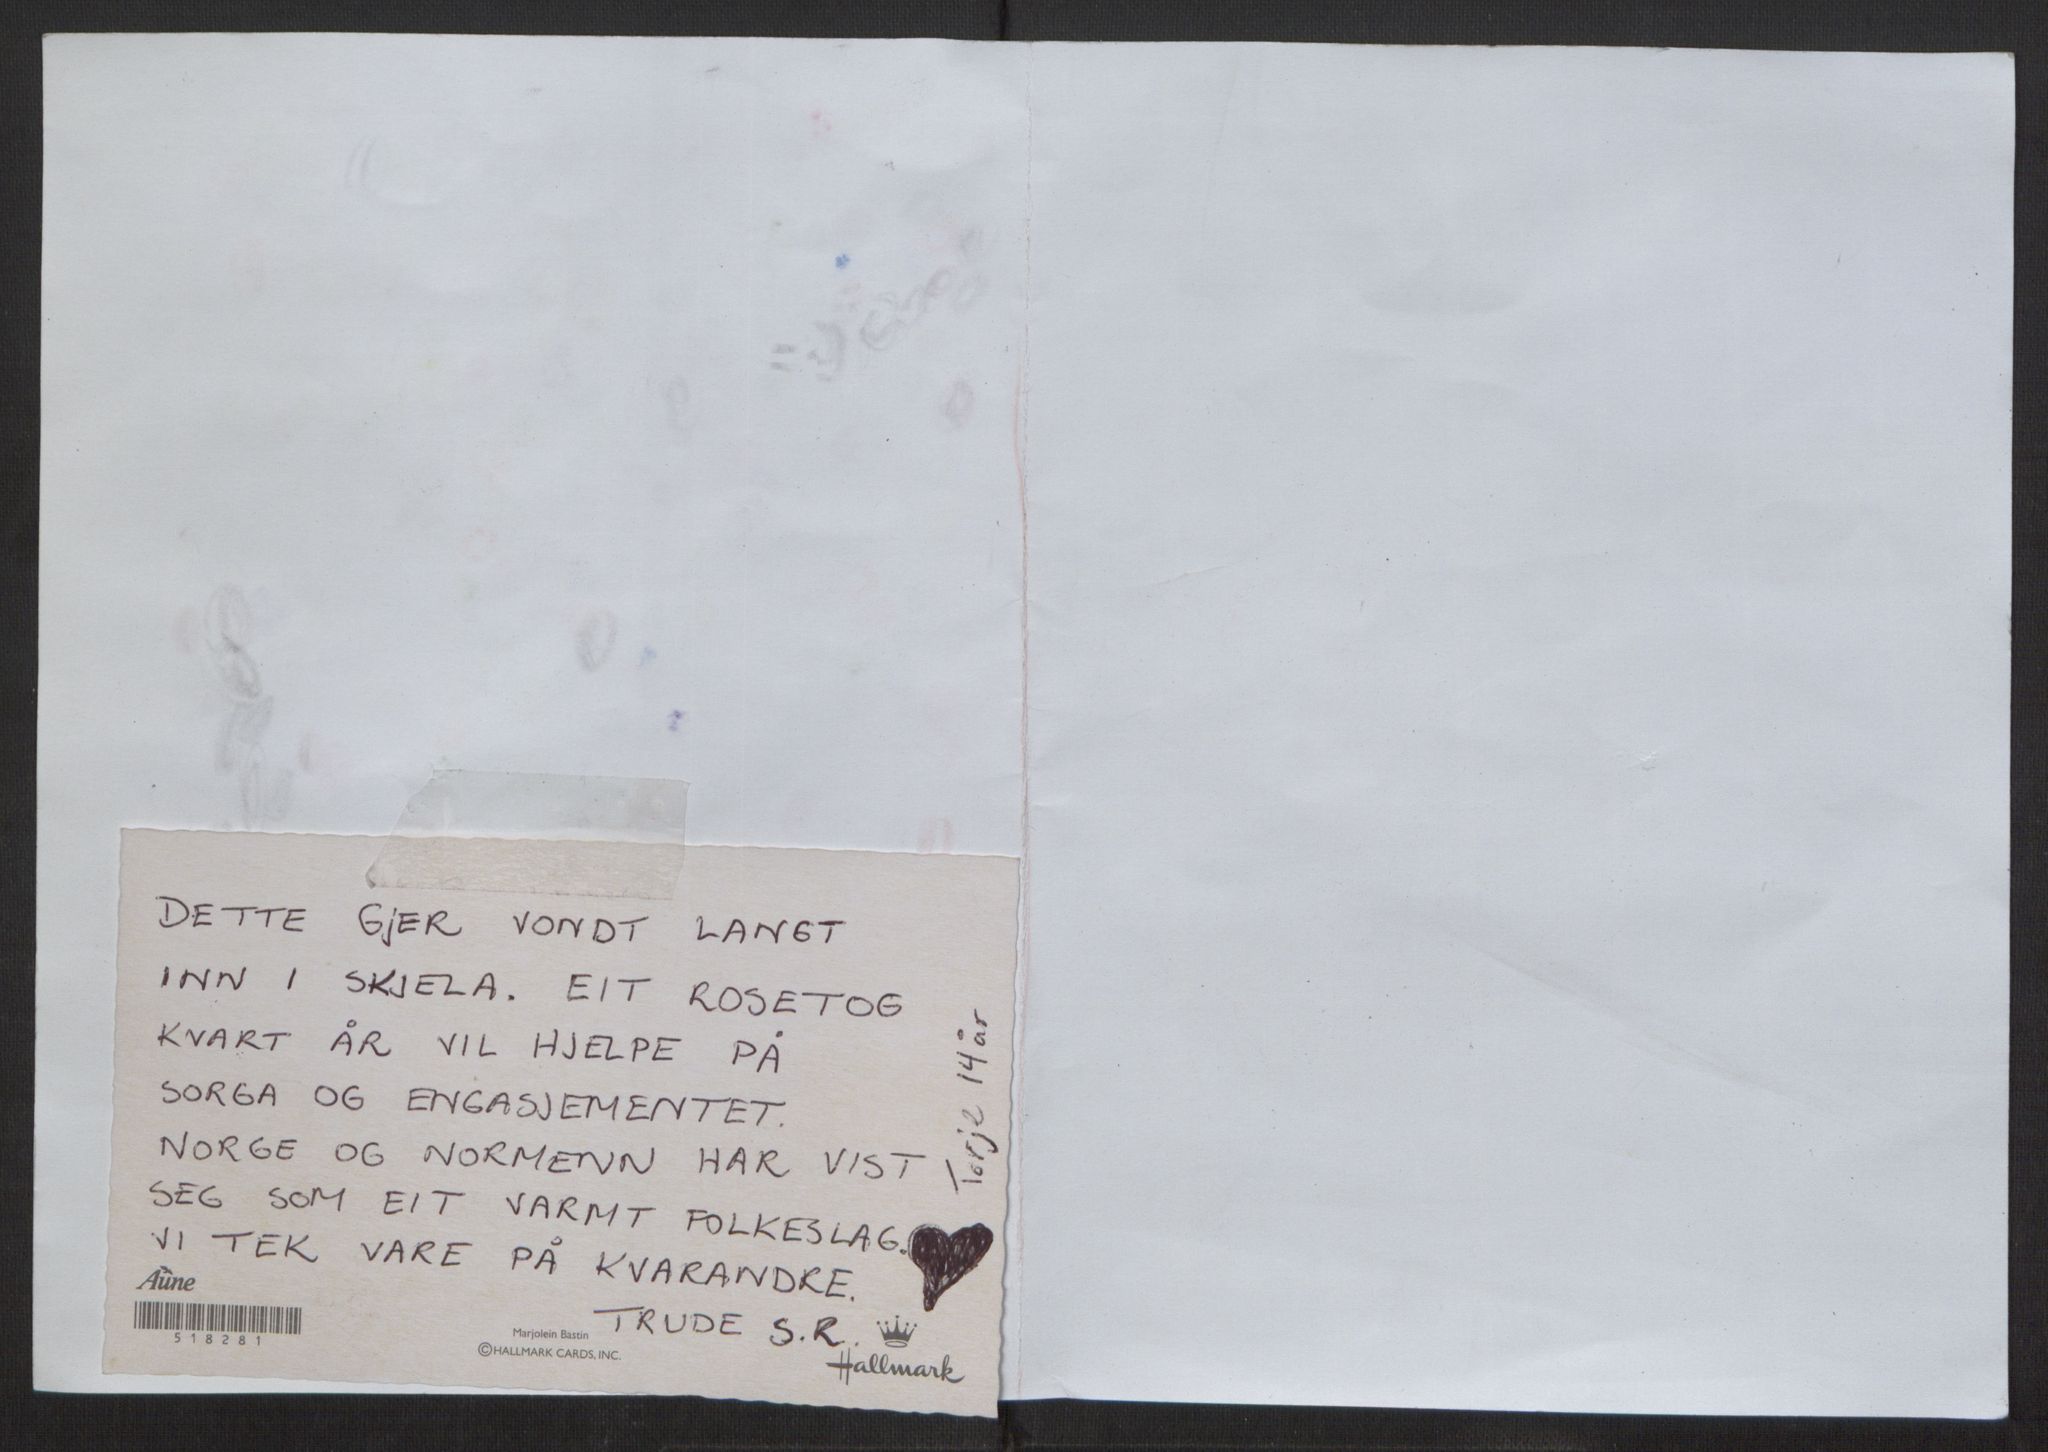 DETTE GJER VONDT LANGT
INN I SKJELA. EIT ROSETOG
KVART ÅR VIL HJELPE PÅ
SORGA OG ENGASJEMENTET.
NORGE OG NORMENN HAR VIST
SEG SOM EIT VARMT FOLKESLAG.
VI TEK VARE PÅ KVARANDRE.
TRUDE S.R.
Torje 14 år
Aune
518281
Marjolein Bastin
©HALLMARK CARDS, INC.
Hallmark